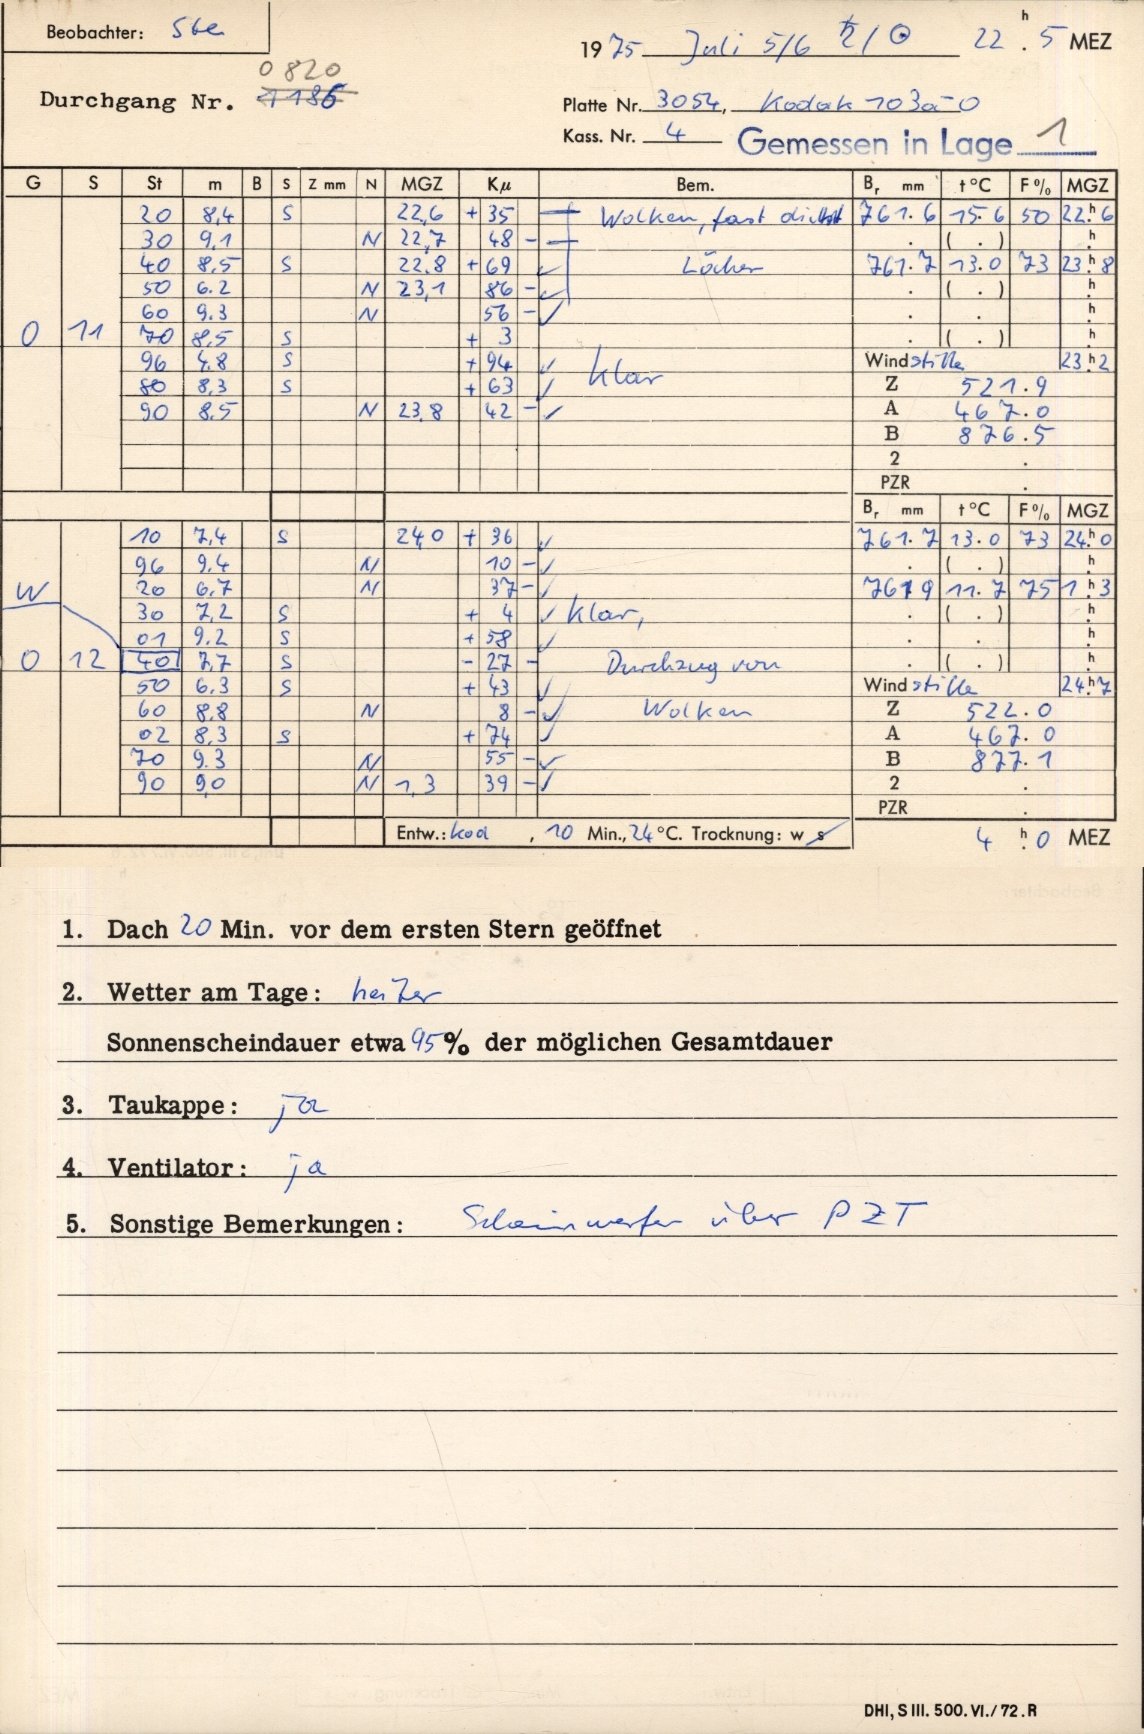 Beobachter: Ste
1975 Juli 5/6 ♄/☉ 22h.5 MEZ
0820
Durchgang Nr. 1186
Platte Nr. 3054, Kodak 103a-0
Kass. Nr. 4 Gemessen in Lage 1
G S St m B S Z mm N MGZ Kμ Bem. Br mm t°C F% MGZ
20 8,4 S 22,6 + 35 Wolken, fast dicht 761.6 15.6 50 22h.6
30 9,1 N 22,7 48 - . ( . ) h.
40 8,5 S 22.8 + 69 ✓ Löcher 761.7 13.0 73 23h.8
50 6.2 N 23,1 86 - ✓ . ( . ) h.
60 9.3 N 56 - ✓ . . h.
0 11 70 8,5 S + 3 . ( . ) h.
96 4.8 S + 94 ✓ klar Wind stille 23h.2
80 8,3 S + 63 ✓ Z 521.9
90 8.5 N 23,8 42 - ✓ A 467.0
B 876.5
2 .
PZR .
Br mm t°C F% MGZ
10 7,4 S 24,0 + 36 ✓ 761.7 13.0 73 24h.0
96 9.4 N 10 - ✓ . ( . ) h.
W 20 6,7 N 37 - 761 9 11.7 75 1h.3
30 7,2 S + 4 ✓ klar, . ( . ) h.
01 9.2 S + 58 ✓ . . h.
0 12 40 7,7 S - 27 - Durchzug von . ( . ) h.
50 6,3 S + 43 ✓ Wind stille 24h.7
60 8,8 N 8 - ✓ Wolken Z 522.0
02 8,3 S + 74 ✓ A 467.0
70 9.3 N 55 - ✓ B 877.1
90 9,0 N 1,3 39 - ✓ 2 .
PZR .
Entw.: kod , 10 Min., 24 °C. Trocknung: w s 4h.0 MEZ
1. Dach 20 Min. vor dem ersten Stern geöffnet
2. Wetter am Tage: heiter
Sonnenscheindauer etwa 95% der möglichen Gesamtdauer
3. Taukappe: ja
4. Ventilator: ja
5. Sonstige Bemerkungen: Scheinwerfer über PZT
DHI, S III. 500. VI./72. R